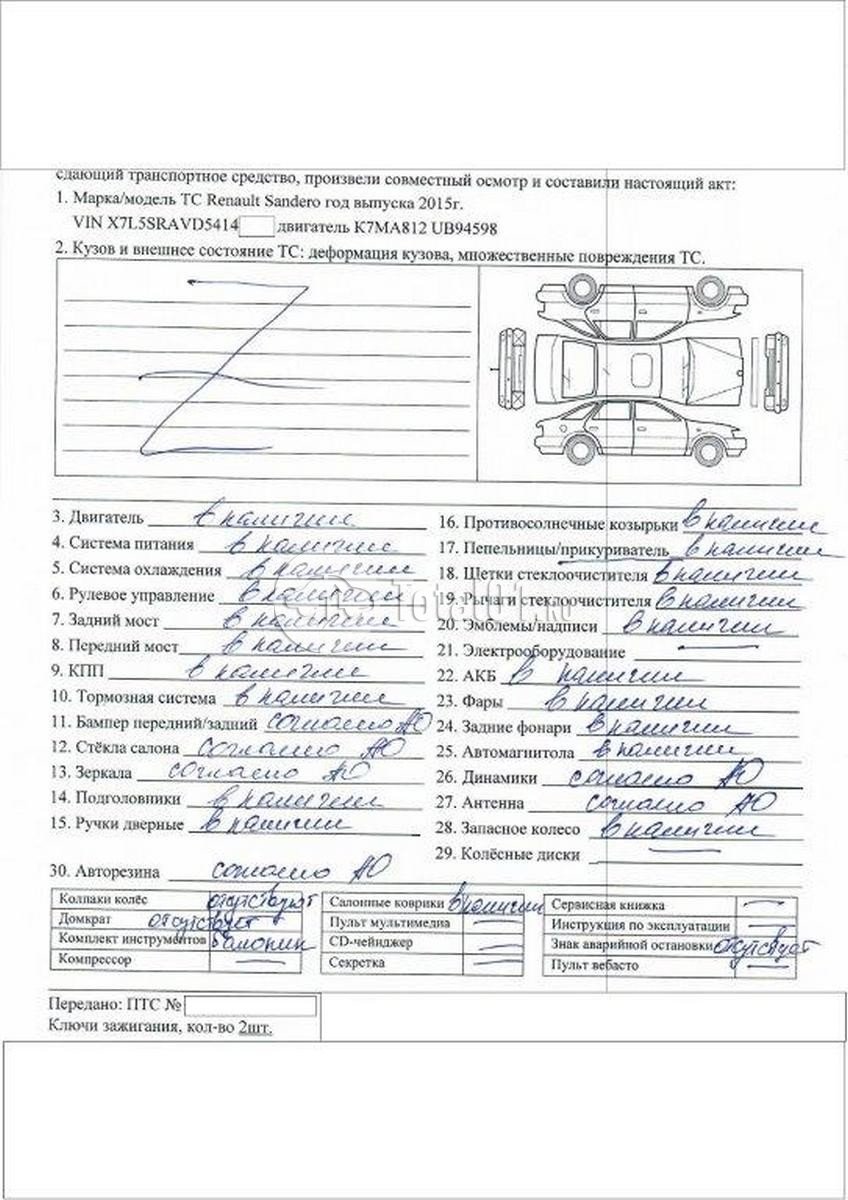 сдающий транспортное средство, произвели совместный осмотр и составили настоящий акт:
1. Марка/модель ТС Renault Sandero год выпуска 2015г.
VIN X7L5SRAVD5414 двигатель K7MA812 UB94598
2. Кузов и внешнее состояние ТС: деформация кузова, множественные повреждения ТС.
3. Двигатель в наличии
4. Система питания в наличии
5. Система охлаждения в наличии
6. Рулевое управление в наличии
7. Задний мост в наличии
8. Передний мост в наличии
9. КПП в наличии
10. Тормозная система в наличии
11. Бампер передний/задний согласно АО
12. Стёкла салона согласно АО
13. Зеркала согласно АО
14. Подголовники в наличии
15. Ручки дверные в наличии
16. Противосолнечные козырьки в наличии
17. Пепельницы/прикуриватель в наличии
18. Щетки стеклоочистителя в наличии
19. Рычаги стеклоочистителя в наличии
20. Эмблемы/надписи в наличии
21. Электрооборудование —
22. АКБ в наличии
23. Фары в наличии
24. Задние фонари в наличии
25. Автомагнитола в наличии
26. Динамики согласно АО
27. Антенна согласно АО
28. Запасное колесо в наличии
29. Колёсные диски —
30. Авторезина согласно АО
Total01.ru
Колпаки колёс отсутствуют
Домкрат отсутствует
Комплект инструментов балонник
Компрессор —
Салонные коврики в наличии
Пульт мультимедиа —
CD-чейнджер —
Секретка —
Сервисная книжка —
Инструкция по эксплуатации —
Знак аварийной остановки отсутствует
Пульт вебасто —
Передано: ПТС №
Ключи зажигания, кол-во 2шт.